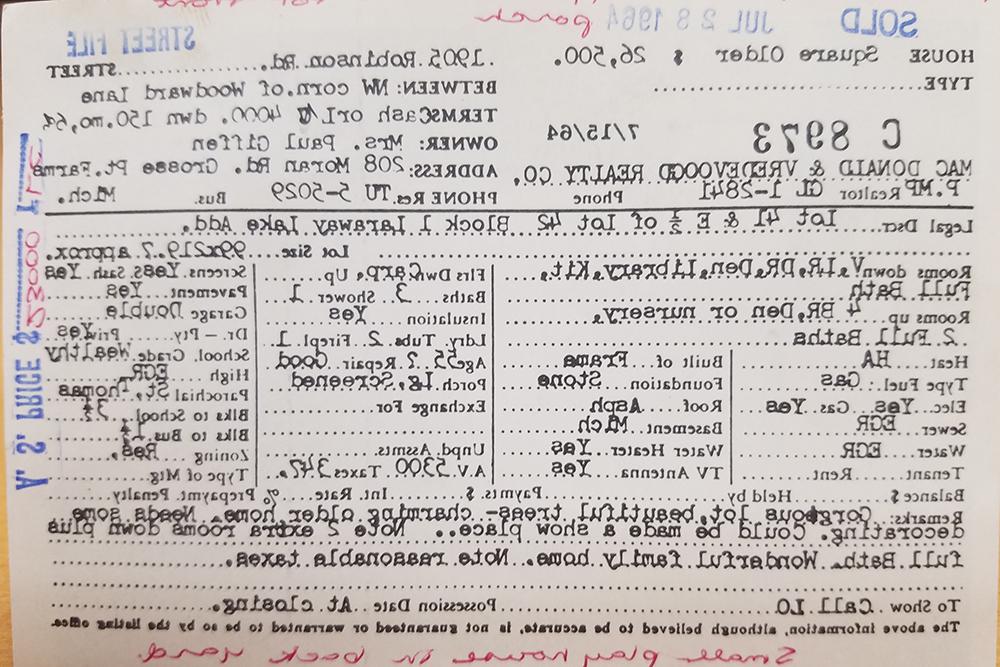 porch
SOLD JUL 28 1964 STREET FILE
HOUSE Square Older $ 26,500. 1905 Robinson Rd. STREET
TYPE BETWEEN: NW corn. of Woodward Lane
TERMS Cash or L/C 4000. dwn 150.mo,6%,
C 8973 7/15/64 OWNER: Mrs. Paul Giffen
ADDRESS: 208 Moran Rd. Grosse Pt. Farms
MAC DONALD & VREDEVOOGD REALTY CO.
P. MP. Realtor GL 1-2841 Phone PHONE Res. TU 5-5029 Bus. Mich.
Legal Dscr. Lot 41 & E ½ of Lot 42 Block 1 Laraway Lake Add.
Lot Size 99x219.7 approx.
Rooms down V,LR,DR,Den,Library,Kit, Flrs Dwn Carp. Up Screens Yes Sash Yes
Full Bath Baths 3 Shower 1 Pavement Yes
Rooms up 4 BR,Den or nursery, Insulation Yes Garage Double
2 Full Baths Ldry. Tubs 2 Firepl 1 Dr. - Pty. Priv Yes
Heat HA Built of Frame Age 55 ? Repair Good School, Grade Wealthy
Type Fuel: Gas Foundation Stone Porch Lg, Screened High EGR
Elec. Yes Gas Yes Roof Asph Exchange For Parochial St. Thomas
Sewer EGR Basement Mich Blks to School 3½
Water EGR Water Heater Yes Unpd. Assmts. Blks to Bus 1½
Tenant Rent TV Antenna Yes A.V. 5300 Taxes 347. Zoning Res.
Type of Mtg.
Balance $ Held by Paymts. $ Int. Rate % Prepaymt. Penalty
Remarks: Gorgeous lot, beautiful trees- charming older home. Needs some
decorating. Could be made a show place. Note 2 extra rooms down plus
full Bath. Wonderful family home. Note reasonable taxes.
To Show Call LO Possession Date At closing.
The above information, although believed to be accurate, is not guaranteed or warranted to be so by the listing office.
Small play house in back yard.
A. S. PRICE $ 23000